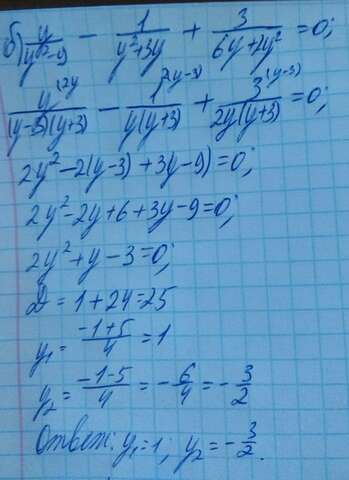 б) y/(y²-9) - 1/(y²+3y) + 3/(6y+2y²) = 0;
y^(2y)/((y-3)(y+3)) - 1^(2(y-3))/(y(y+3)) + 3^(y-3)/(2y(y+3)) = 0;
2y²-2(y-3)+3y-9)=0;
2y²-2y+6+3y-9=0;
2y²+y-3=0;
D=1+24=25
y₁=(-1+5)/4=1
y₂=(-1-5)/4=-6/4=-3/2
Ответ: y₁=1; y₂=-3/2.